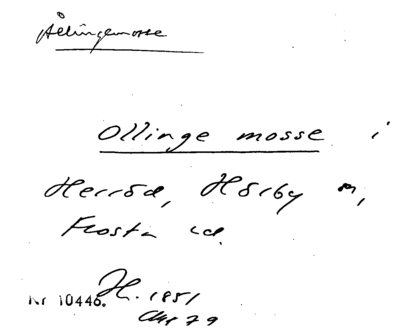 Ållingemosse
Ollinge mosse i
Herröd, Hörby sn,
Frosta hd.
Nr 10446. H. 1851
79